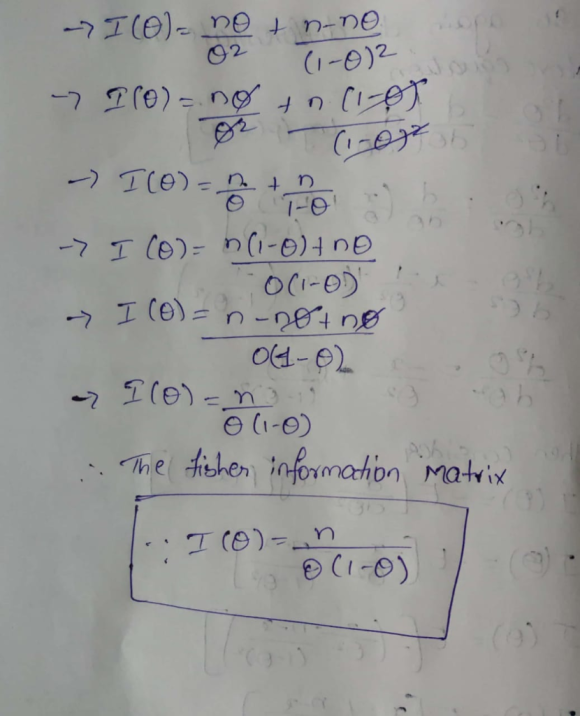 → I(θ) = nθ/θ² + n-nθ/(1-θ)²
→ I(θ) = nθ/θ² + n(1-θ)/(1-θ)²
→ I(θ) = n/θ + n/1-θ
→ I(θ) = n(1-θ)+nθ/θ(1-θ)
→ I(θ) = n-nθ+nθ/θ(1-θ)
→ I(θ) = n/θ(1-θ)
∴ The fisher information matrix
∴ I(θ) = n/θ(1-θ)